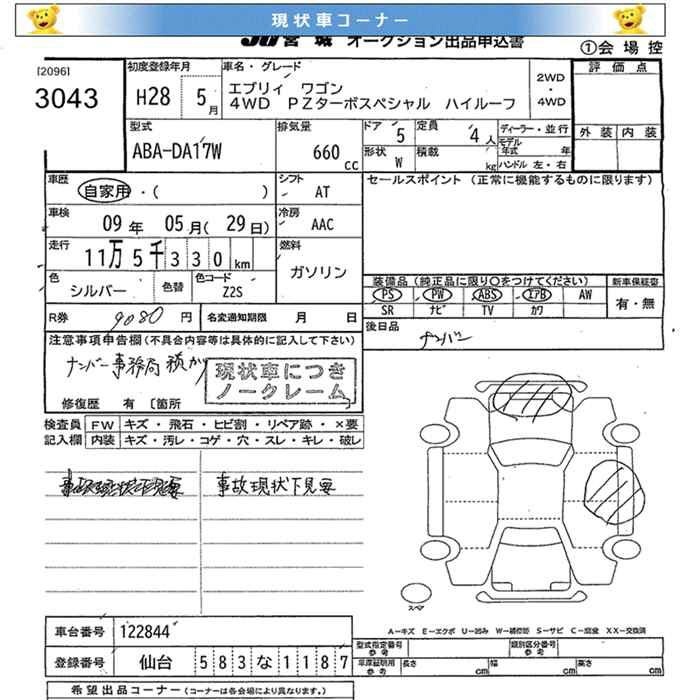 現状車コーナー
JU宮城 オークション出品申込書
①会場控
[2096]
3043
初度登録年月
H28 5月
車名・グレード
エブリィ ワゴン
4WD PZターボスペシャル ハイルーフ
2WD
・
4WD
評価点
外装 内装
型式
ABA-DA17W
排気量
660 cc
ドア 5
形状 W
定員 4人
積載 kg
ディーラー・並行
モデル年式 年
ハンドル 左・右
車歴
自家用・( )
シフト AT
セールスポイント (正常に機能するものに限ります)
車検
09年 05月(29日)
冷房 AAC
走行
11万5千330km
燃料
ガソリン
色
シルバー
色替
色コード
Z2S
装備品(純正品に限り○をつけてください)
新車保証書
PS PW ABS エアB AW
SR ナビ TV カワ
有・無
R券 9080円
名変通知期限 月 日
後日品
ナンバー
注意事項申告欄(不具合内容等は具体的に記入して下さい)
ナンバー事務局預かり
現状車につき
ノークレーム
修復歴 有 〔箇所
検査員
記入欄
FW キズ・飛石・ヒビ割・リペア跡・×要
内装 キズ・汚レ・コゲ・穴・スレ・キレ・破レ
事故現状下見要
スペア
A−キズ E−エクボ U−凹み W−補修跡 S−サビ C−腐蝕 XX−交換済
車台番号 122844
型式指定番号参考
類別区分番号参考
登録番号 仙台 583な1187
車庫証明用参考 長さ cm 幅 cm 高さ cm
希望出品コーナー(コーナーは各会場により異なります。)